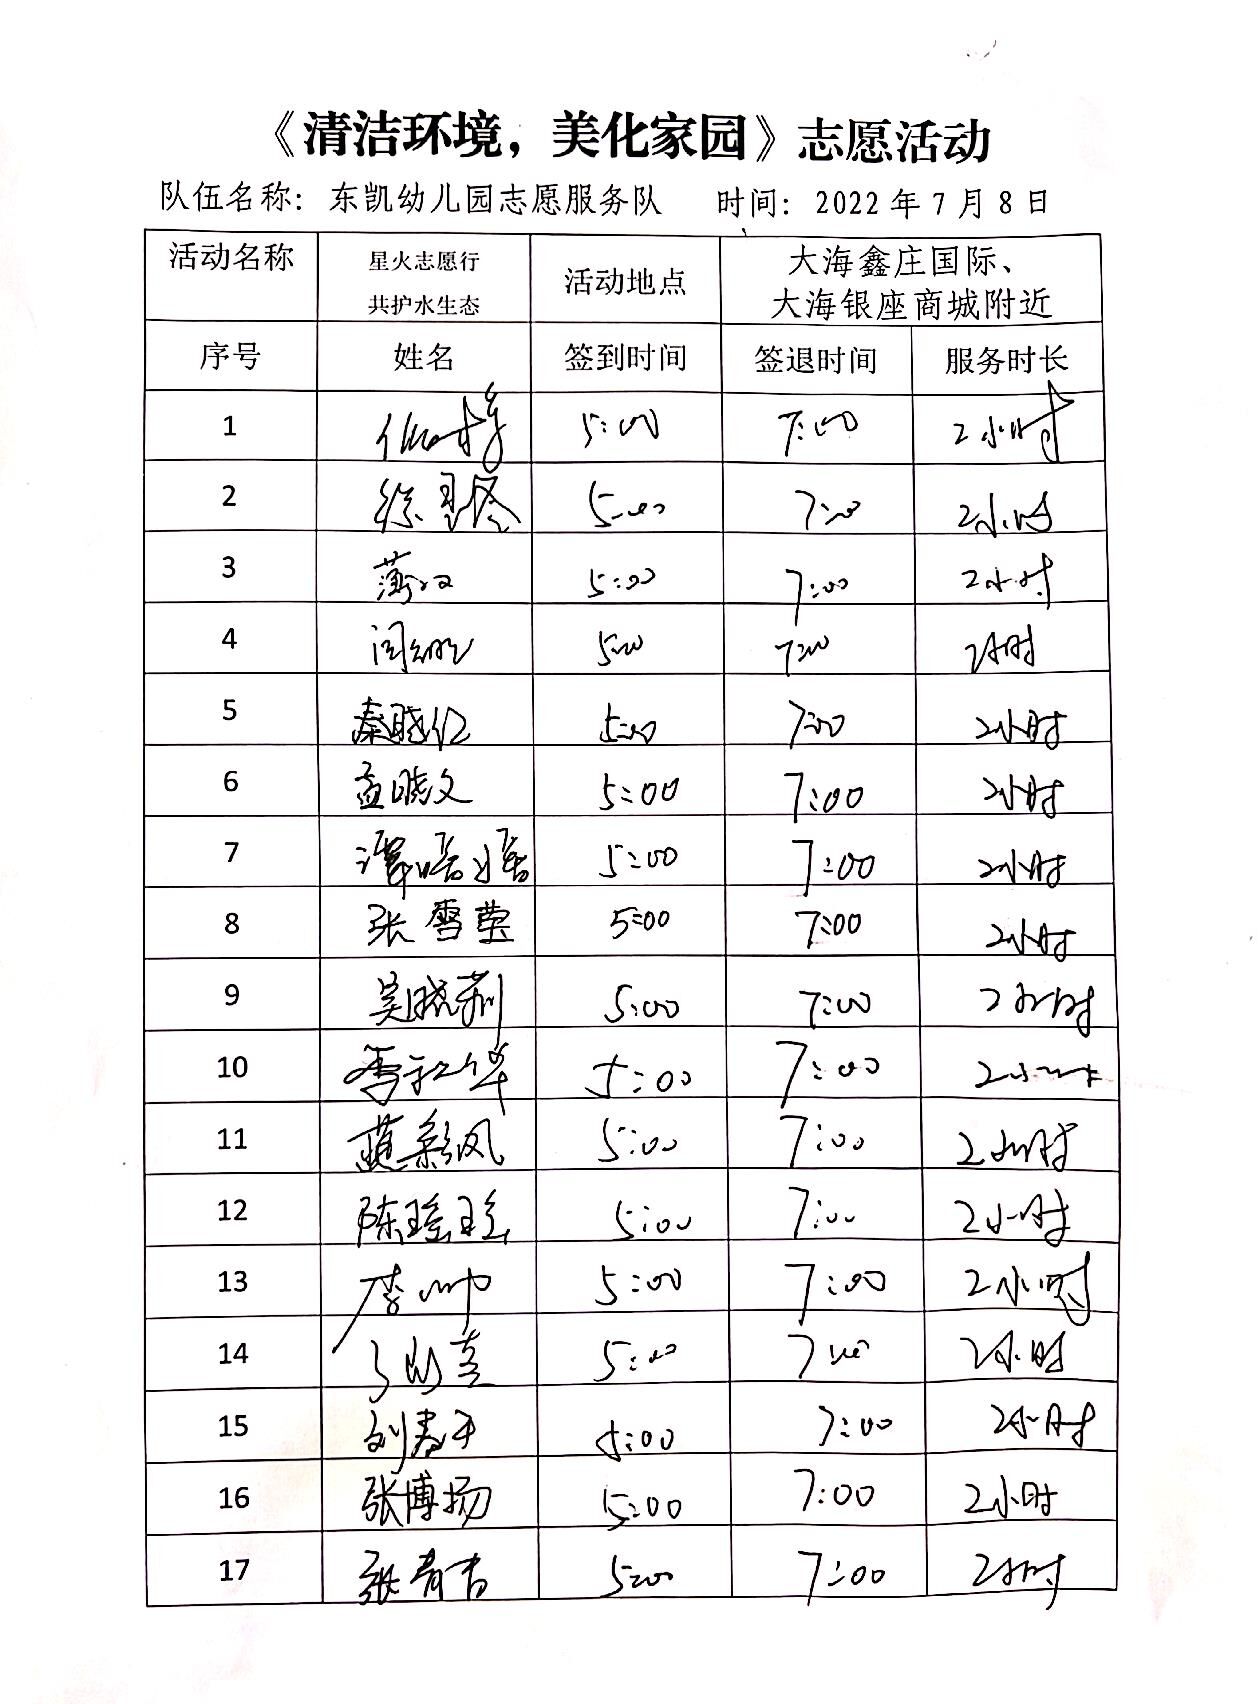 《清洁环境，美化家园》志愿活动
队伍名称：东凯幼儿园志愿服务队 时间：2022年7月8日
活动名称 星火志愿行 共护水生态 活动地点 大海鑫庄国际、大海银座商城附近
序号 姓名 签到时间 签退时间 服务时长
1 5:00 7:00 2小时
2 5:00 7:00 2小时
3 5:00 7:00 2小时
4 5:00 7:00 2小时
5 秦晓仪 5:00 7:00 2小时
6 孟晓文 5:00 7:00 2小时
7 5:00 7:00 2小时
8 张雪莹 5:00 7:00 2小时
9 吴晓莉 5:00 7:00 2小时
10 5:00 7:00 2小时
11 5:00 7:00 2小时
12 陈瑶瑶 5:00 7:00 2小时
13 李帅 5:00 7:00 2小时
14 5:00 7:00 2小时
15 5:00 7:00 2小时
16 张博扬 5:00 7:00 2小时
17 5:00 7:00 2小时